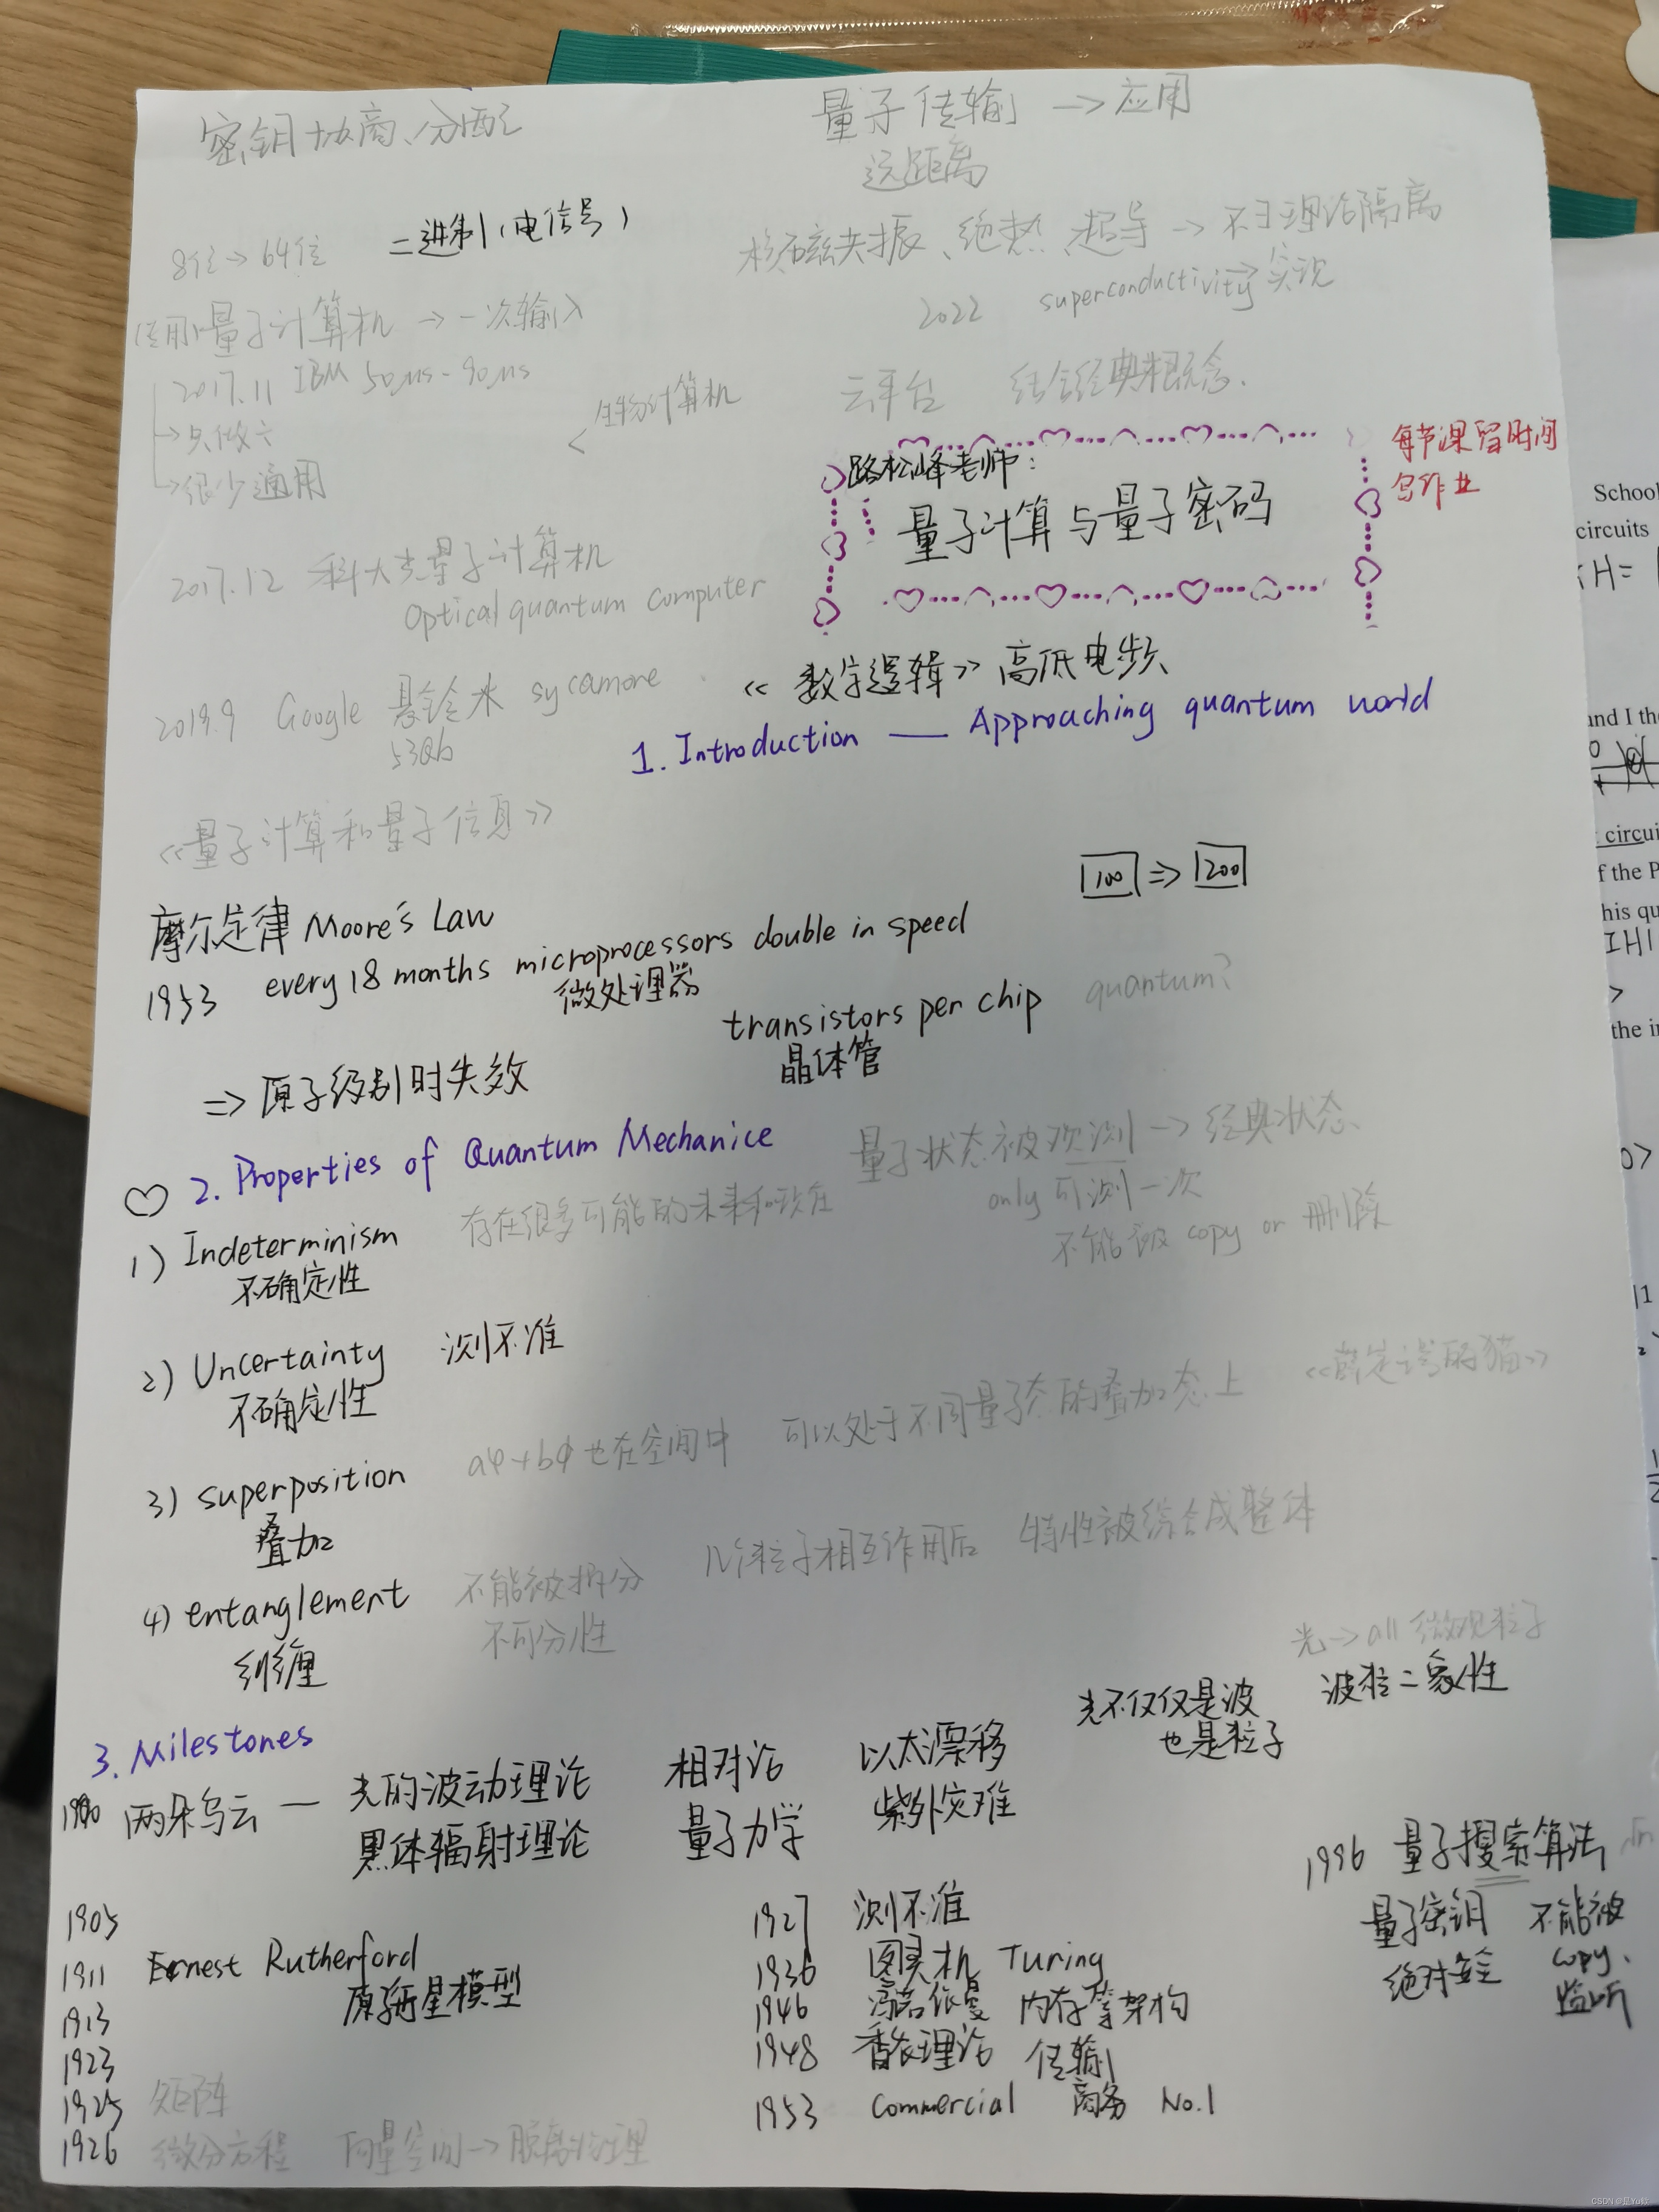 密钥协商、分配
量子传输 → 应用
远距离
8位 → 64位
二进制(电信号)
核磁共振、绝热、超导 → 不可理论隔离
2022 superconductivity → 实现
量子计算机 → 一次输入
2017.11 IBM 50μs-90μs
→ 只做
→ 很少通用
< 生物计算机
云平台 结合经典概念.
每节课留时间
写作业
路松峰老师:
量子计算与量子密码
2017.12 科大光量子计算机
Optical quantum computer
2019.9 Google 悬铃木 sycamore
53Qb
《数字逻辑》高低电频
1. Introduction — Approaching quantum world
《量子计算和量子信息》
100 ⇒ 200
摩尔定律 Moore's Law
1953 every 18 months microprocessors double in speed
微处理器
transistors per chip quantum?
晶体管
⇒ 原子级别时失效
♡ 2. Properties of Quantum Mechanice
量子状态被观测 → 经典状态
only 可测一次
不能被 copy or 删除
1) Indeterminism 存在很多可能的未来和现在
不确定性
2) Uncertainty 测不准
不确定性
3) superposition aφ+bφ也在空间中 可以处于不同量子态的叠加态上 《薛定谔的猫》
叠加
4) entanglement 不能被拆分 几个粒子相互作用后 特性被综合成整体
纠缠 不可分性
光 → all 微观粒子
光不仅仅是波 波粒二象性
也是粒子
3. Milestones
1900 两朵乌云 — 光的波动理论 相对论 以太漂移
黑体辐射理论 量子力学 紫外灾难
1905
1911 Ernest Rutherford
原子行星模型
1913
1923
1925 矩阵
1926 微分方程 向量空间 → 脱离物理
1927 测不准
1936 图灵机 Turing
1946 冯若依曼 内存等架构
1948 香农理论 传输
1953 Commercial 商务 No.1
1996 量子搜索算法
量子密钥 不能被
绝对安全 copy、
监听
School
circuits
H=
and I th
circui
f the P
his qu
IHI
the i
CSDN @是Yu欸